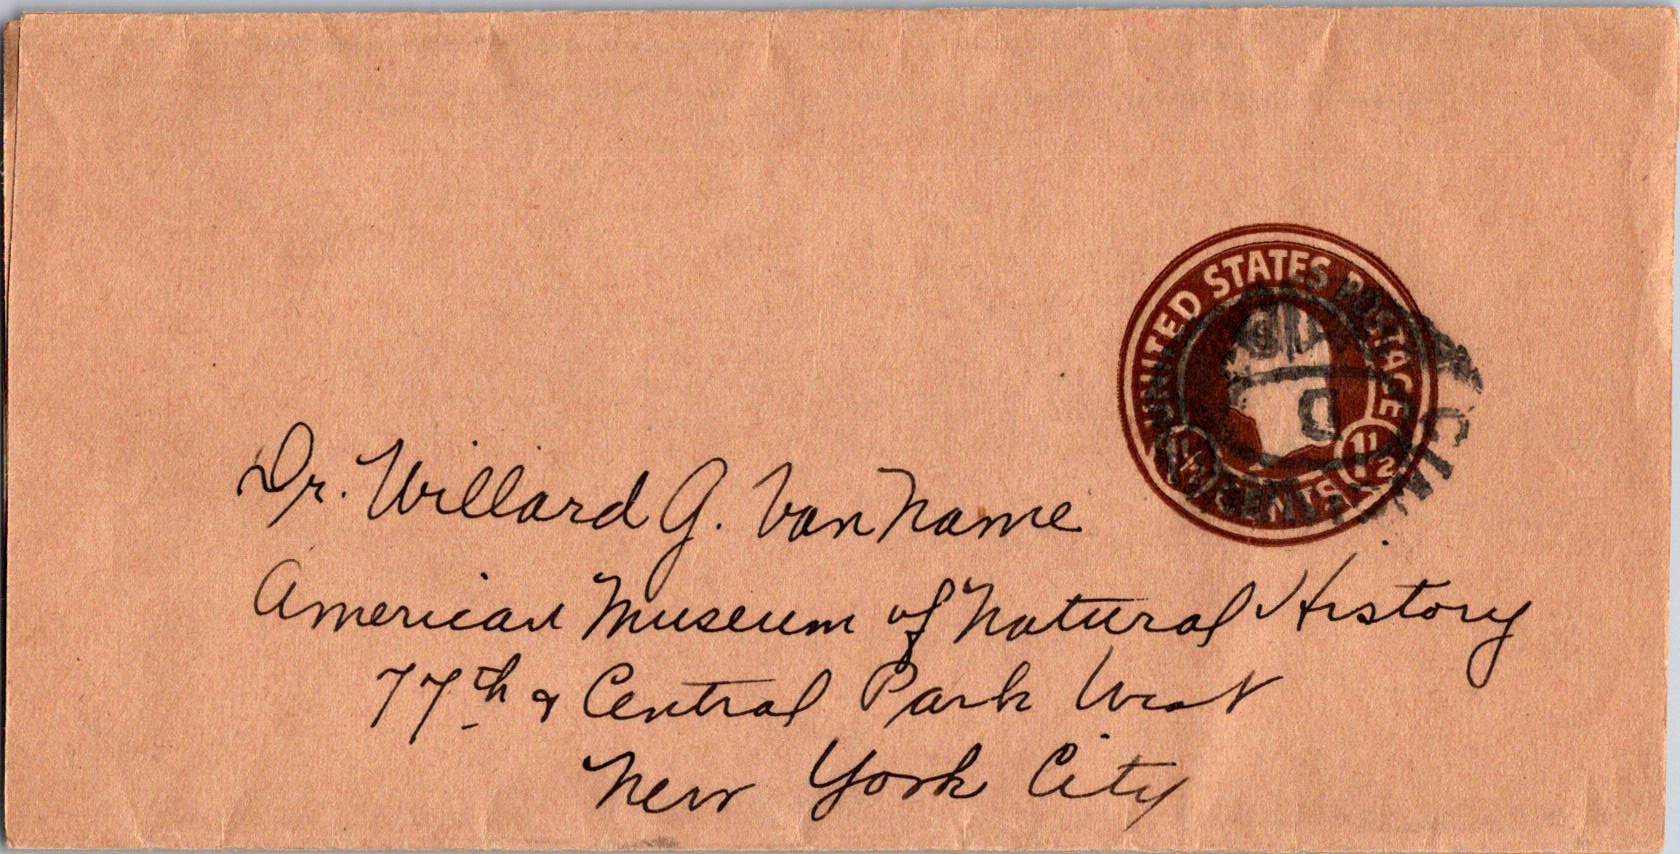 UNITED STATES POSTAGE
1½ CENTS 1½
Dr. Willard G. Van Name
American Museum of Natural History
77th & Central Park West
New York City